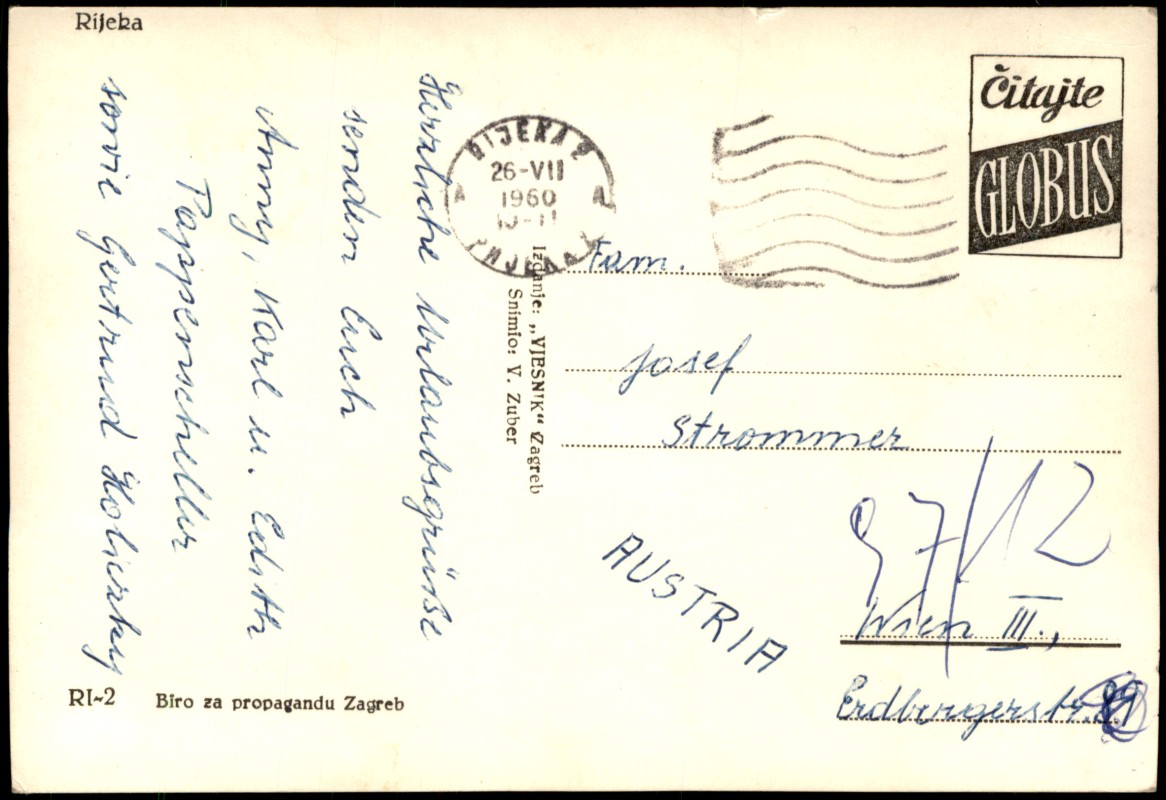 Rijeka
Herzliche Urlaubsgrüße
senden Euch
Anny, Karl u. Edith
Pappenscheller
sowie Gertrud
RIJEKA 2
26-VII
1960
Čitajte
GLOBUS
Izdanje: „VJESNIK“ Zagreb
Snimio: V. Zuber
Fam.
Josef
Strommer
97/12
AUSTRIA
Wien III.,
Erdbergerstr.
RI-2 Biro za propagandu Zagreb